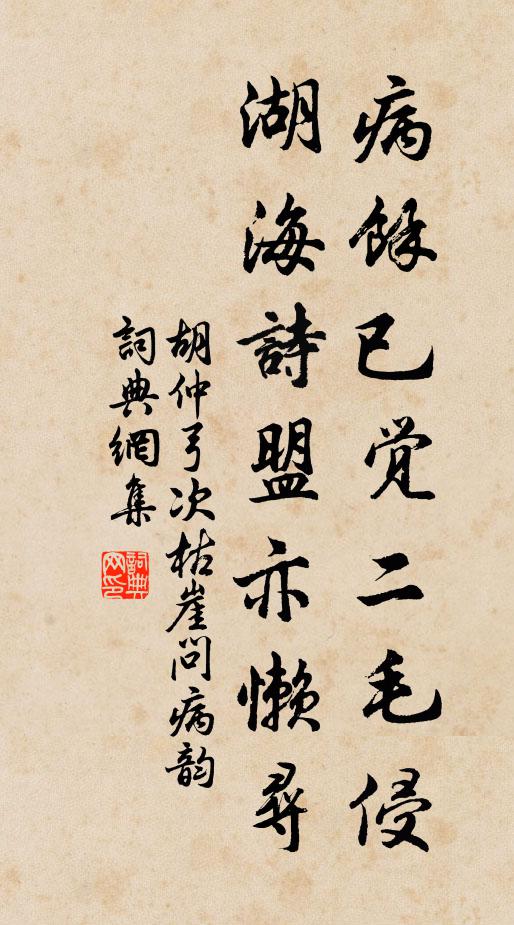 病餘已觉二毛侵
湖海詩盟亦懒尋
胡仲弓次枯崖問病韵
詞典網集
詞典网印